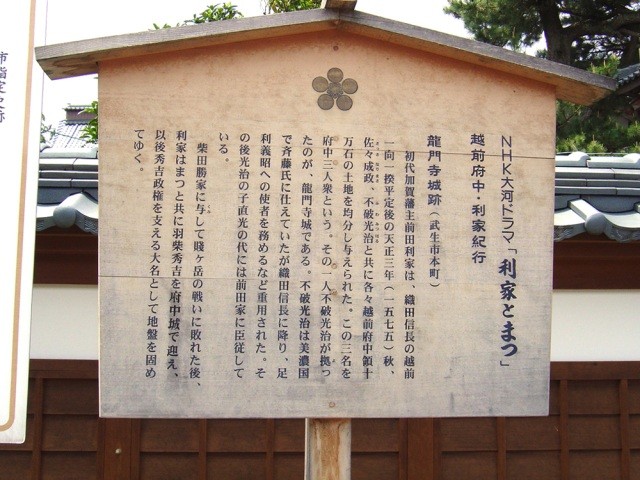 NHK大河ドラマ「利家とまつ」
越前府中・利家紀行
龍門寺城跡(武生市本町)
初代加賀藩主前田利家は、織田信長の越前
一向一揆平定後の天正三年(一五七五)秋、
佐々成政、不破光治と共に各々越前府中領十
万石の土地を均分し与えられた。この三名を
府中三人衆という。その一人不破光治が拠っ
たのが、龍門寺城である。不破光治は美濃国
で斉藤氏に仕えていたが織田信長に降り、足
利義昭への使者を務めるなど重用された。そ
の後光治の子直光の代には前田家に臣従して
いる。
柴田勝家に与して賤ヶ岳の戦いに敗れた後、
利家はまつと共に羽柴秀吉を府中城で迎え、
以後秀吉政権を支える大名として地盤を固め
てゆく。
市指定史跡